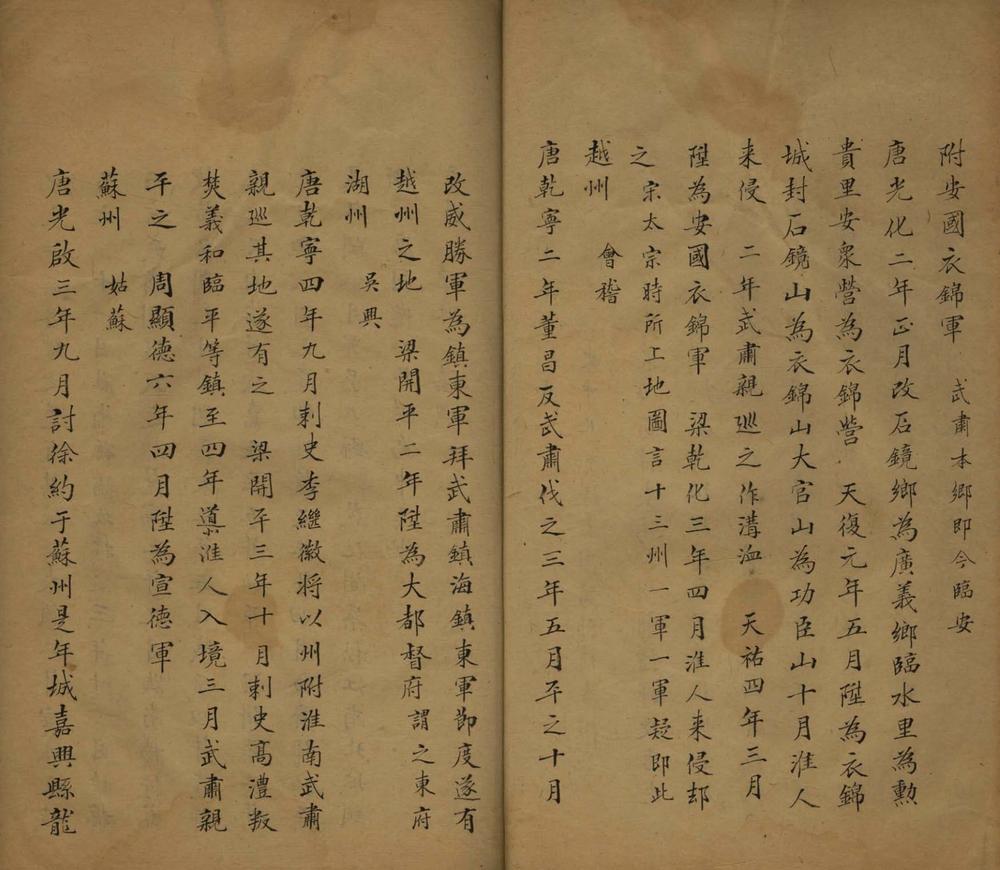 附安國衣錦軍　武肅本鄉即今臨安
唐光化二年正月改石鏡鄉為廣義鄉臨水里為勲
貴里安衆營為衣錦營　天復元年五月陞為衣錦
城封石鏡山為衣錦山大官山為功臣山十月淮人
来侵　二年武肅親巡之作溝洫　天祐四年三月
陞為安國衣錦軍　梁乾化三年四月淮人来侵却
之　宗太宗時所上地圖言十三州一軍一軍疑即此
越州　會稽
唐乾寧二年董昌反武肅伐之三年五月平之十月
改威勝軍為鎮東軍拜武肅鎮海鎮東軍節度遂有
越州之地　梁開平二年陞為大都督府謂之東府
湖州　吳興
唐乾寧四年九月刺史李繼徽将以州附淮南武肅
親巡其地遂有之　梁開平三年十月刺史髙澧叛
焚義和臨平等鎮至四年導淮人入境三月武肅親
平之　周顯德六年四月陞為宣德軍
蘇州　姑蘇
唐光啟三年九月討徐約于蘇州是年城嘉興縣龍